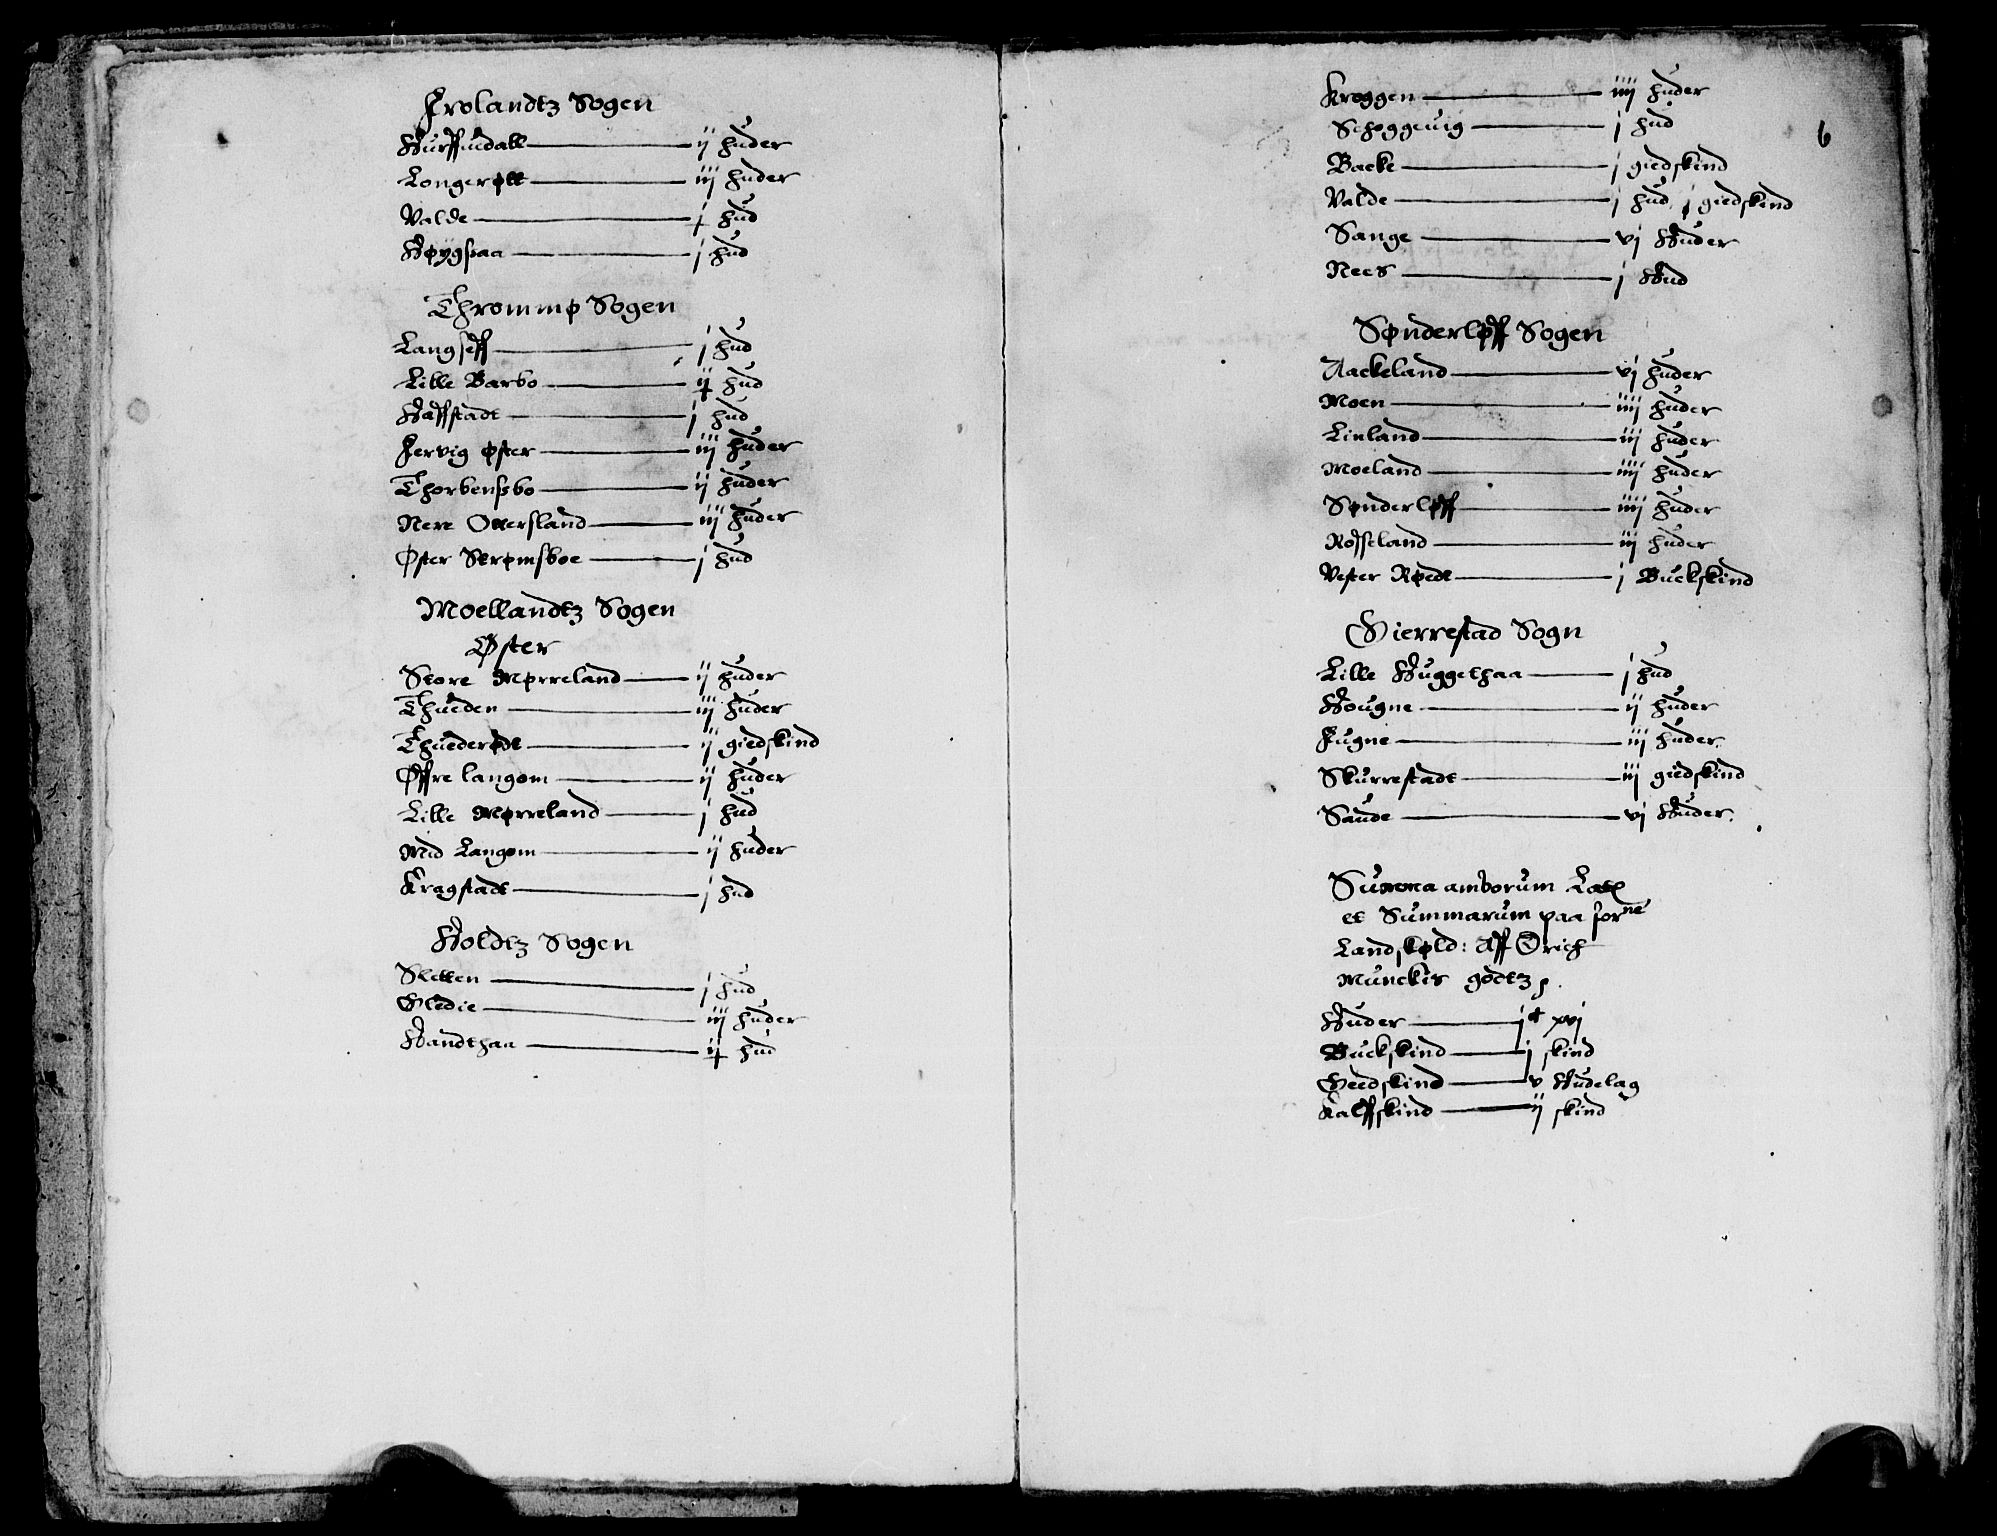 Frolandtz Sogen
Hurffuedall ij huder
Longerøtt iij huder
Valde j hud
Høygsaa j hud
Thrommø Sogen
Langseff j hud
Lille Barbo ij hud
Haffstadt j hud
Jervig Øster iij huder
Thorbensbo ij huder
Nere Ottersland iij huder
Øster Strømsboe j hud
Moellandtz Sogen
Øster
Store Mørreland ij huder
Thueden iij huder
Thuederødt ij giedskind
Øffre langom ij huder
Lille Mørreland j hud
Mid Langom ij huder
Kragstadt j hud
Holdtz Sogen
Sletten j hud
Gledie iij huder
Handthaa ij hud
6
Kroggen iiij huder
Schoggeuig j hud
Backe j giedskind
Valde j hud j giedskind
Sange vj Huder
Nees j Hud
Sønderløff Sogen
Aackeland vj huder
Moen iiij huder
Linland iij huder
Moeland iiij huder
Sønderløff iiij huder
Rosseland iij huder
Vester Røedt j Buckskind
Gierrestad Sogn
Lille Huggethaa j hud
Hougne ij huder
Fugne iij huder
Skurrestadt iij giedskind
Saude vj Huder
Summa amborum Late
et Summarum paa forne
Landskøld: Aff Orich
Munckis godtz
Huder jc xvj
Buckskind j skind
Geedskind v Hudelag
Kalffskind ij skind